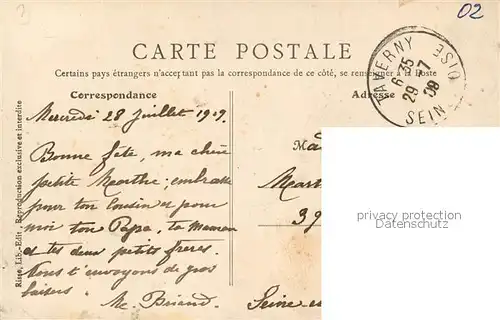 02
CARTE POSTALE
Certains pays étrangers n'acceptant pas la correspondance de ce côté, se renseigner à la Poste
Correspondance
Adresse
TAVERNY
6 35
29 -7
09
SEINE OISE
Mercredi 28 Juillet 1909.
Bonne fête, ma chère
petite Marthe; embrasse
pour ton cousin et pour
moi ton Papa, ta Maman
et tes deux petits frères.
Nous t'envoyons de gros
baisers.
M. Briand.
Ma
Mar
39
Seine
privacy protection
oldthing.de
Lib.-Edit., Reproduction exclusive et interdite